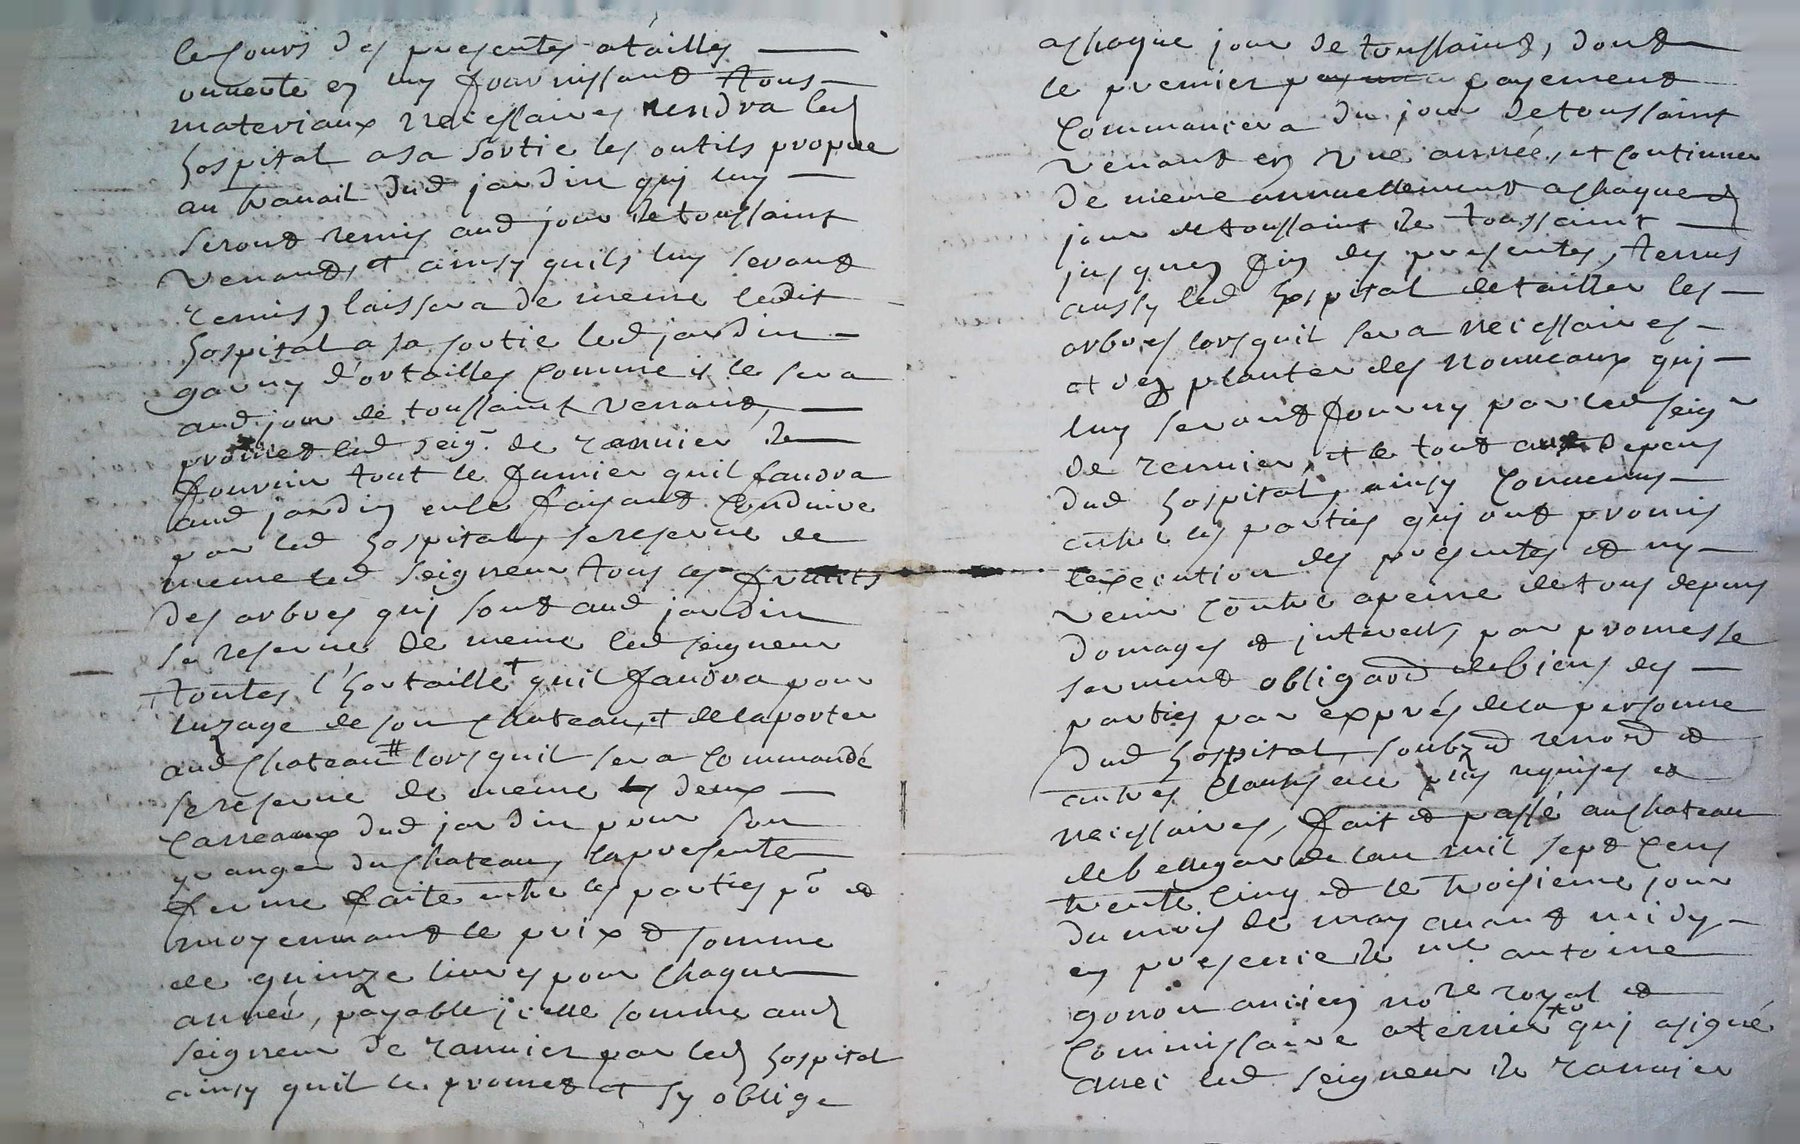 le cours des presentes a tailles
ouverte en luy fournissant tous
materiaux necessaires rendra led
hospital a sa sortie les outils propre
au travail dud jardin quj luy
seront remis aud jour de toussaint
venant, et ainsy quils luy seront
remis, laissera de meme ledit
hospital a sa sortie led jardin
garny d'ortailles comme il le sera
aud jour de toussaint venant,
promet led seigr de rannier de
fournir tout le fumier quil faudra
aud jardin en le faisant conduire
par led hospital, se reserve de
meme led seigneur tous les fruits
des arbres quj sont aud jardin
se reserve de meme led seigneur
toutes l'hortaille + quil faudra pour
luzage de son chateau, et de la porter
aud chateau # lors quil sera commandé
se reserve de meme les deux
carreaux dud jardin pour son
granger du chateau, la presente
ferme faite entre les parties po et
moyennant le prix et somme
de quinze livres pour chaque
anneé, payable jcelle somme aud
seigneur de rannier par led hospital
ainsy quil le promet et sy oblige
a chaque jour de toussaint, dont
le premier payement
commancera du jour de toussaint
venant en une année, et continuer
de meme annuellement a chaque
jour de toussaint de toussaint
jusques fin des presentes, tenus
aussy led hospital de tailler les
arbres lors quil sera necessaires
et den planter des nouveaux quj
luy seront fourny par led seigr
de rannier, et le tout aux depens
dud hospital, ainsy convenus
entre les parties quj ont promis
lexecution des presentes et ny
venir contre a peine de tous depens
domages et jnterets par promesse
serment obligaon de biens des
parties par exprés de la personne
dud hospital, soubzon renon et
autres clauses aux pñs requises et
necessaires, fait et passé au chateau
de bellegarde lan mil sept cens
trente cinq et le troisieme jour
du mois de may avant midy
en presence de me antoine
gonon ancien nore royal et
commissaire a terrier quj a signé
avec led seigneur de rannier